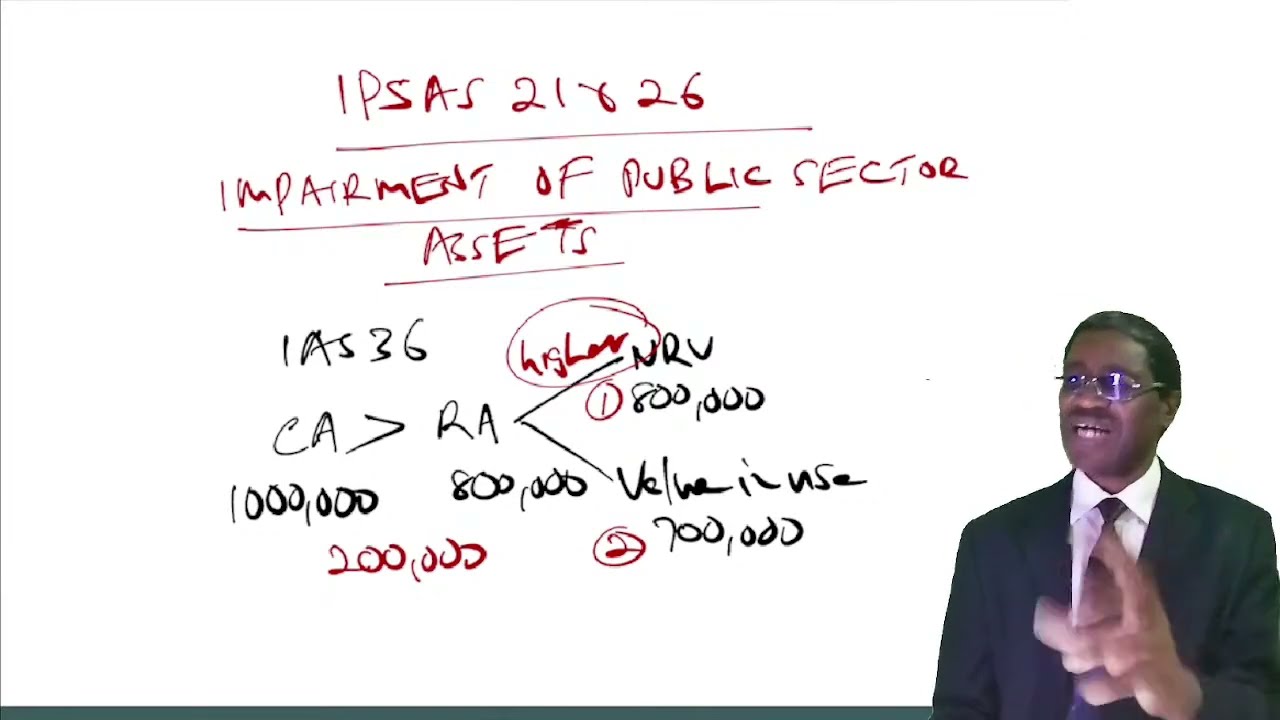 IPSAS 21 & 26
IMPAIRMENT OF PUBLIC SECTOR
ASSETS
IAS 36
higher NRV
① 800,000
CA > RA
Value in use
1000,000 800,000
② 700,000
200,000